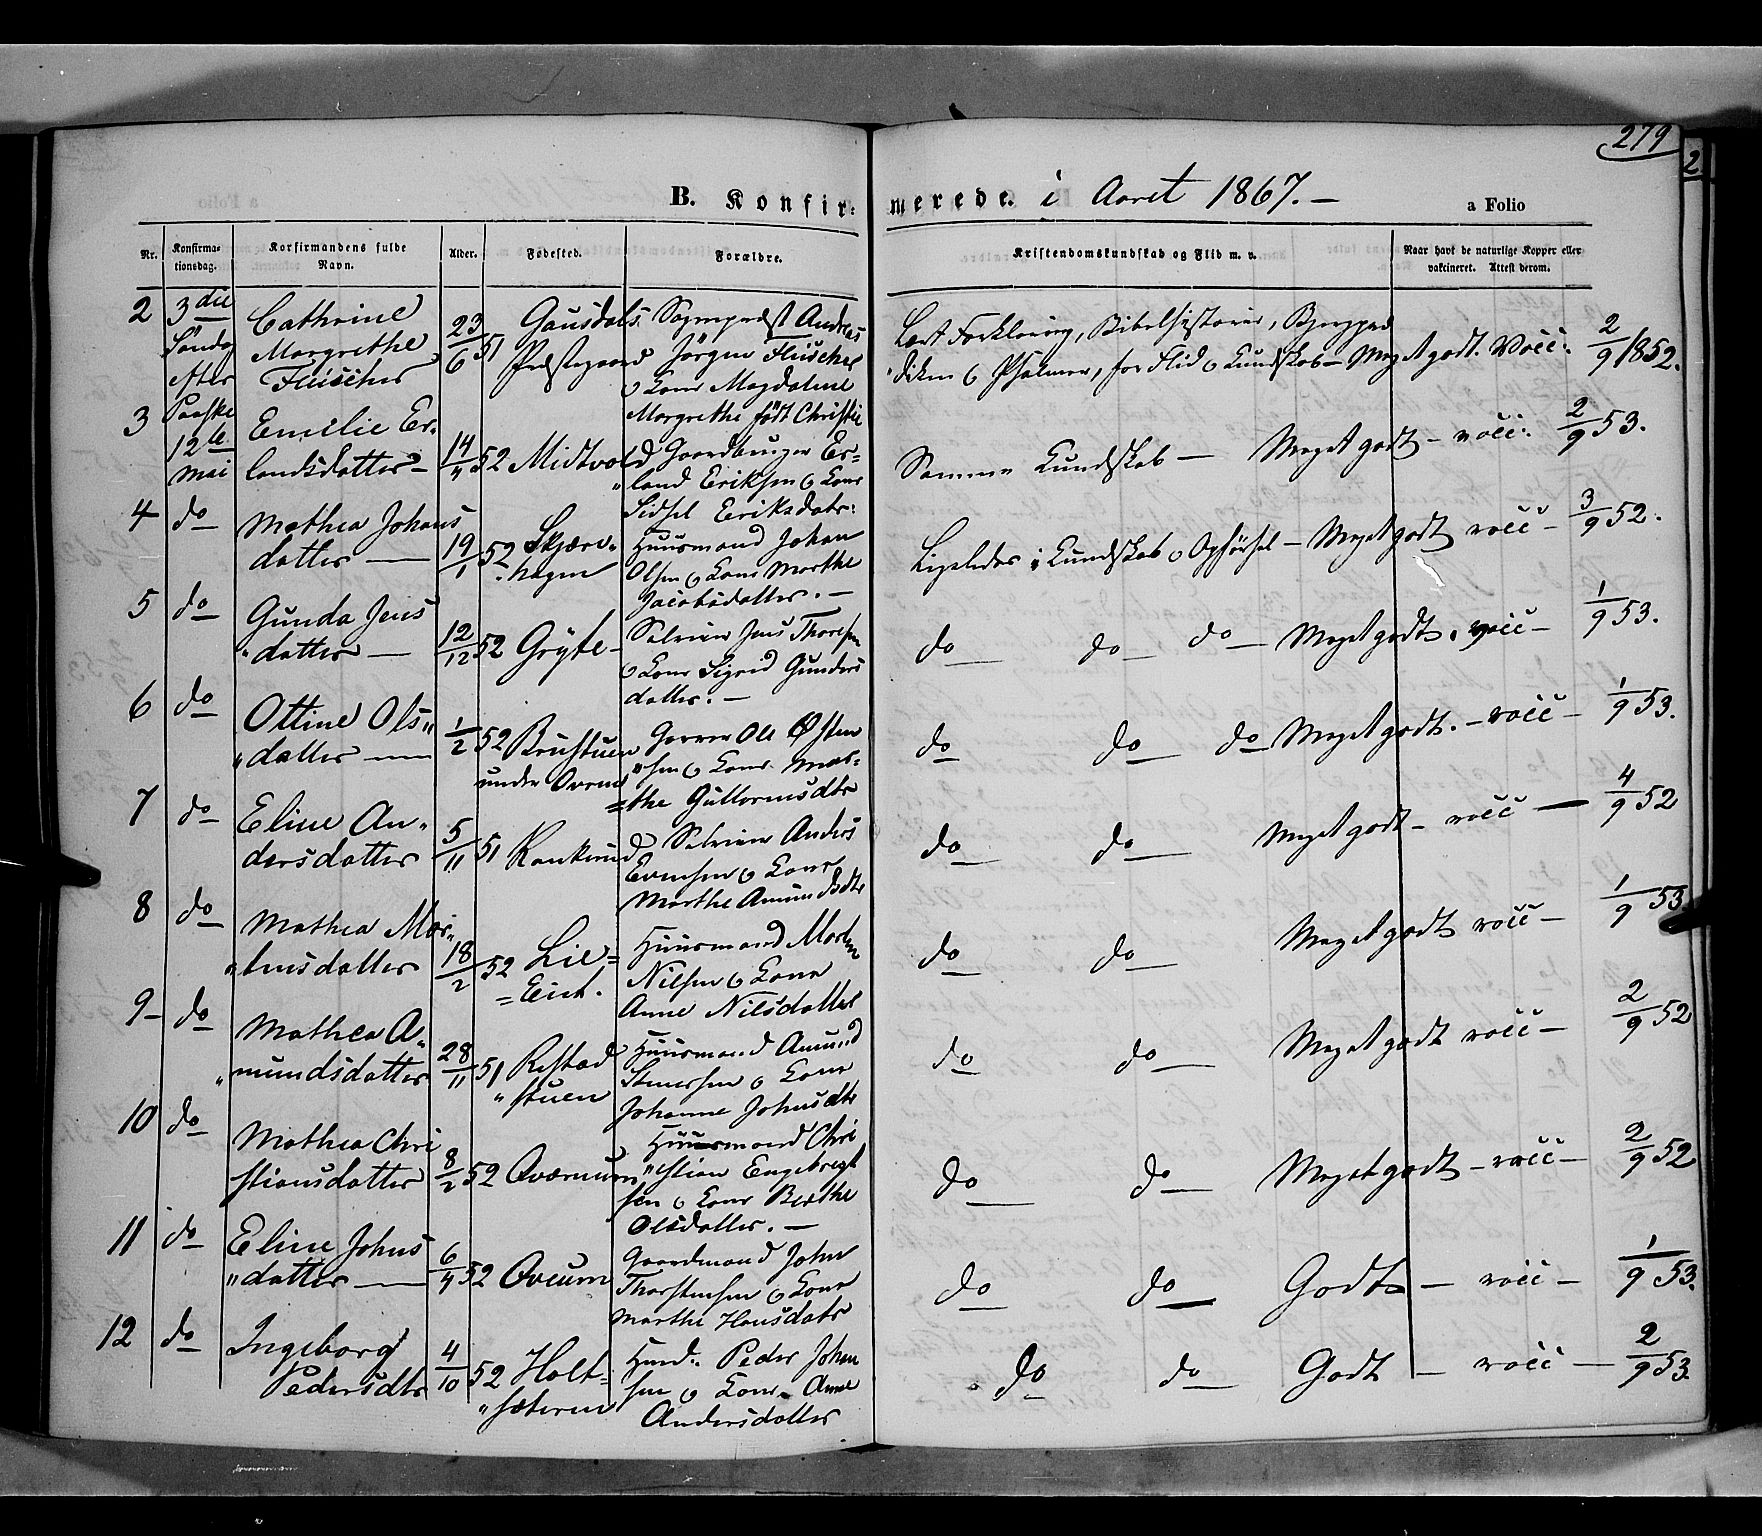 279
2
B. Konfir- merede. i Aaret 1867. –
a Folio
Nr. Konfirmationsdag. Korfirmandens fulde Navn. Alder. Fødested. Forældre. Kristendomskundskab og Flid m. v. Naar havt de naturlige Kopper eller vakcineret. Attest derom.
2 3die Søndag efter Paaske 12te Mai
Cathrine
Margrethe
Fleischer
23/6 51
Gausdals
Præstegaard
Sogneprest Andreas
Jörgen Fleischer
o Kone Magdalene
Margrethe født Christie
Læst Forklaring, Bibelhistorie,
o Psalmer, for Flid o Kundskab – Meget godt. Vacc: 2/9 1852.
3
Emilie Er-
landsdatter –
14/4 52
Midtvold
Gaardbruger Er-
land Eriksen o Kone
Sidsel Eriksdatr:
Samme Kundskab – Meget godt – vacc: 2/9 53.
4 do
Mathea Johans
datter —
19/1 52
Skjæve-
hagen
Huusmand Johan
Olsen o Kone Marthe
Jacobsdatter. –
Ligeledes i Kundskab o Opførsel – Meget godt vacc – 3/9 52.
5 do
Gunda Jens
datter —
12/12 52
Gryte –
Selveier Jens Thoresen
o Kone Sigrid Gunders
datter. –
do do do – Meget godt. vacc – 1/9 53.
6 do
Ottine Ols
datter —
1/2 52
Brustuen
under
Ole Østen
sen o Kone Mar-
the Guttormsdtr
do do do Meget godt. – vacc – 1/9 53.
7 do
Eline An-
dersdatter
5/11 51
Kankerud
Selveier Anders
Evensen o Kone
Marthe Amundsdtr
do do Meget godt – vacc — 4/9 52
8 do
Mathea Mor-
tensdatter
18/2 52
Lie-
Eiet.
Huusmand Morten
Nilsen o Kone
Anne Nilsdatter
do do Meget godt vacc – 1/9 53.
9 – do
Mathea A-
mundsdatter
28/11 51
Restad
stuen
Huusmand Amund
Stenersen o Kone
Johanne Johnsdtr
do do Meget godt vacc – 2/9 52
10 do
Mathea Chri
stiansdatter
8/2 52
Huusmand Chri
stian Engebregt
sen o Kone Berthe
Olsdatter. –
do do Meget godt – vacc – 2/9 52
11 do
Eline Johns
datter —
6/4 52
Oveum
Gaardmand John
Thorstensen o Kone
Marthe Hansdatr
do do Godt – vacc – 1/9 53.
12 do
Ingeborg
Pedersdtr
4/10 52
Holt-
sæteren
Husd: Peder Johan
sen o Kone Anne
Andersdatter
do do Godt – vacc – 2/9 53.